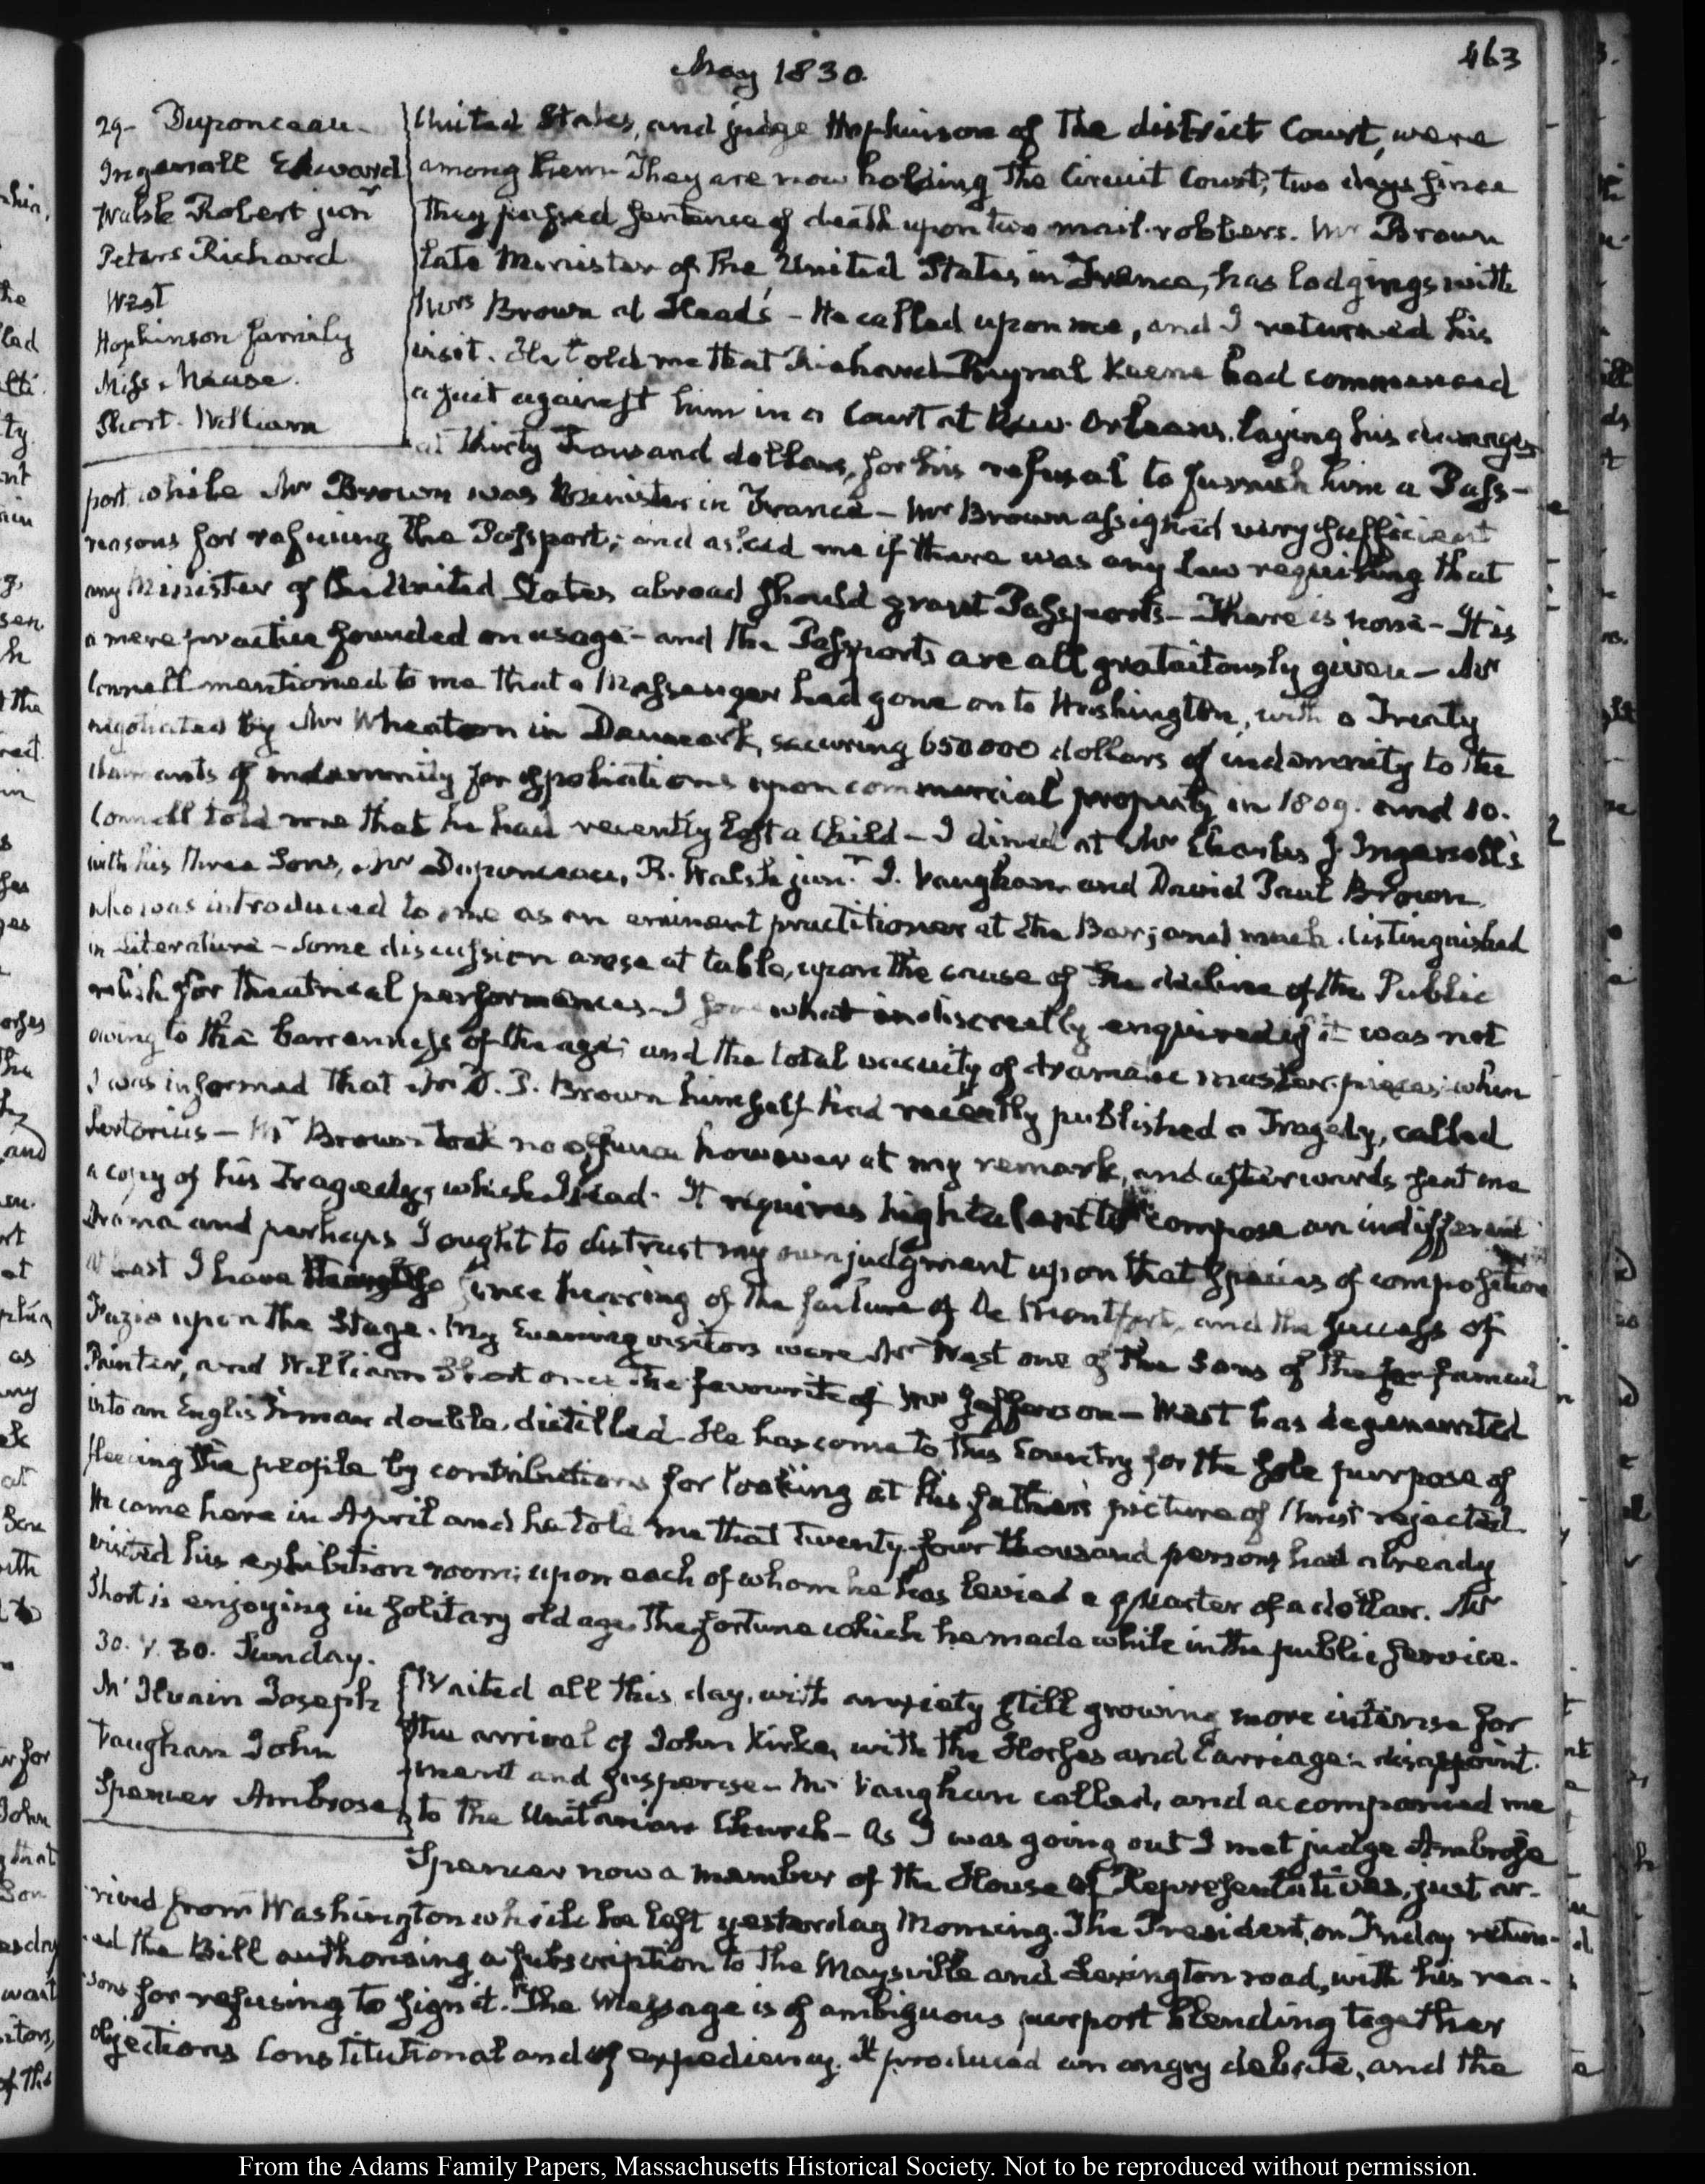 May 1830.
463
29- Duponceau-
Ingersoll Edward
Walsh Robert junr
Peters Richard
West
Hopkinson family
Miss Mease.
Short- William
United States, and judge Hopkinson of the district Court, were
among them- They are now holding the Circuit Court; two days since
they passed sentence of death upon two mail-robbers. Mr Brown
late Minister of the United States in France, has lodgings with
Mrs Brown at Head's - He called upon me, and I returned his
visit. He told me that Richard Raynal Keene had commenced
a suit against him in a Court at New-Orleans, laying his damages
at thirty thousand dollars, for his refusal to furnish him a Pass-
port while Mr Brown was Minister in France - Mr Brown assigned very sufficient
reasons for refusing the Passport; and asked me if there was any Law requiring that
any Minister of the United States abroad should grant Passports - There is none - It is
a mere practice founded on usage - and the Passports are all gratuitously given - Mr
Connell mentioned to me that a Messenger had gone on to Washington, with a Treaty
negotiated by Mr Wheaton in Denmark, securing 650000 dollars of indemnity to the
claimants of indemnity for spoliations upon commercial property in 1809. and 10.
Connell told me that he had recently lost a Child - I dined at Mr Charles J. Ingersoll's
with his three Sons, Mr Duponceau, R. Walsh junr. J. Vaughan and David Paul Brown,
who was introduced to me as an eminent practitioner at the Bar; and much distinguished
in Literature - Some discussion arose at table, upon the cause of the decline of the Public
relish for theatrical performances - I somewhat indiscreetly enquired if it was not
owing to the barrenness of the age; and the total vacuity of dramatic master-pieces; when
I was informed that Mr D. P. Brown himself had recently published a Tragedy, called
Sertorius - Mr Brown took no offence however at my remark, and afterwards sent me
a copy of his Tragedy, which I read. It requires high talent to compose an indifferent
Drama and perhaps I ought to distrust my own judgment upon that species of composition
at least I have thought so since hearing of the failure of De Montfort, and the success of
Fazio upon the Stage. My Evening visitors were Mr West one of the Sons of the far famed
Painter, and William Short once the favourite of Mr Jefferson - West has degenerated
into an Englishman double-distilled. He has come to this Country for the sole purpose of
fleecing the people by contributions for looking at his father's picture of Christ rejected.
He came here in April and he told me that twenty-four thousand persons had already
visited his exhibition room; upon each of whom he has levied a quarter of a dollar. Mr
Short is enjoying in solitary old age, the fortune which he made while in the public service.
30. V. 30. Sunday.
McIlvain Joseph
Vaughan John
Spencer Ambrose
Waited all this day, with anxiety still growing more intense for
the arrival of John Kirke, with the Horses and Carriage- disappoint-
ment and suspense - Mr Vaughan called, and accompanied me
to the Unitarian Church - As I was going out I met judge Ambrose
Spencer now a member of the House of Representatives, just ar-
rived from Washington which he left yesterday Morning. The President, on Friday return-
ed the Bill authorising a subscription to the Maysville and Lexington road, with his rea-
sons for refusing to sign it. The Message is of ambiguous purport blending together
objections Constitutional and of expediency. It produced an angry debate, and the
From the Adams Family Papers, Massachusetts Historical Society. Not to be reproduced without permission.